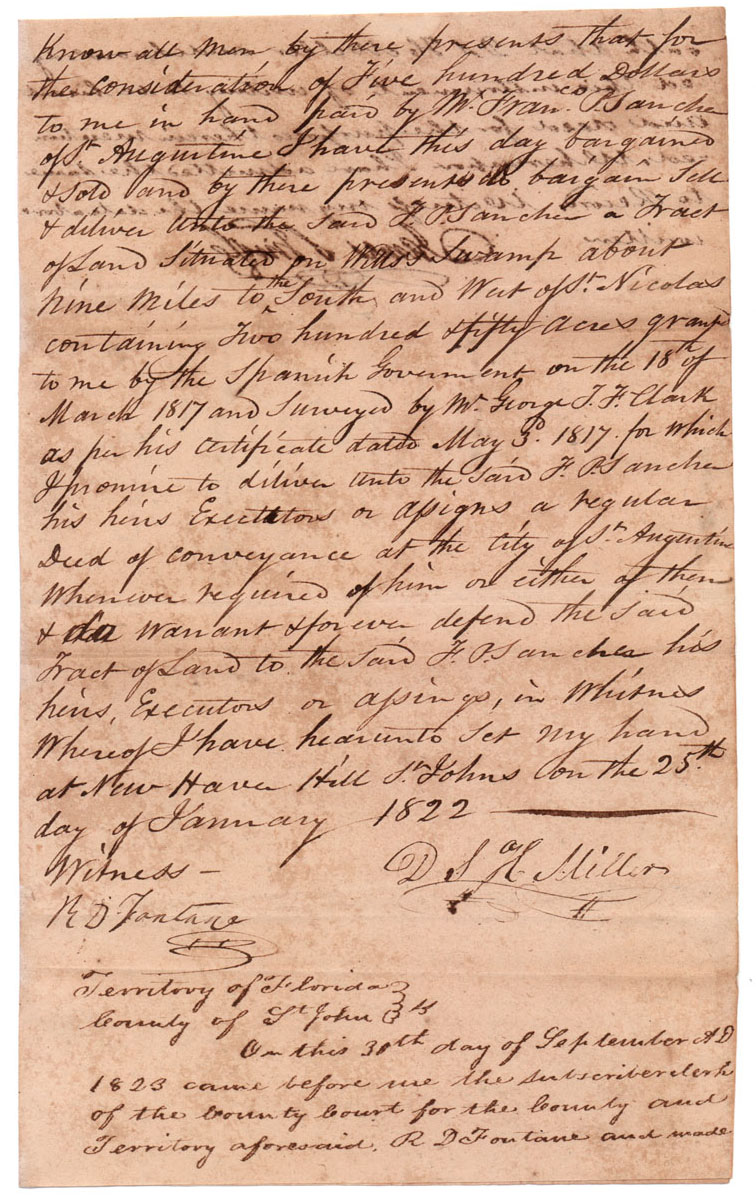 Know all Men by these presents that for
the consideration of Five hundred Dollars
to me in hand paid by Mr. Franco. P. Sanchez
of St. Augustine I have this day bargained
& sold and by these presents do bargain Sell
& deliver unto the Said F. P. Sanchez a Tract
of Land Situated on Wills's Swamp about
Nine Miles to the South and West of St. Nicolas
containing Two hundred & fifty Acres granted
to me by the Spanish Goverment on the 18th of
March 1817 and Surveyed by Mr. George J. F. Clark
as per his Certificate dated May 3d. 1817. for which
I promise to diliver unto the Said F. P. Sanchez
his heirs Executors or assigns a regular
Deed of conveyance at the City of St. Augustine
Whenever required of him or either of them
& do Warrant & forever defend the Said
Tract of Land to the Said F. P. Sanchez his
heirs, Executors or assings, in Whitnes
Whereof I have hearunto Set my hand
at New Haver Hill St. Johns on the 25th
day of January 1822
Witness — D S H Miller
R D. Fontane
Territory of Florida
County of St John } ss
On this 30th day of September A D
1823 came before me the subscriber clerk
of the County Court for the County and
Territory aforesaid, R D Fontane and made